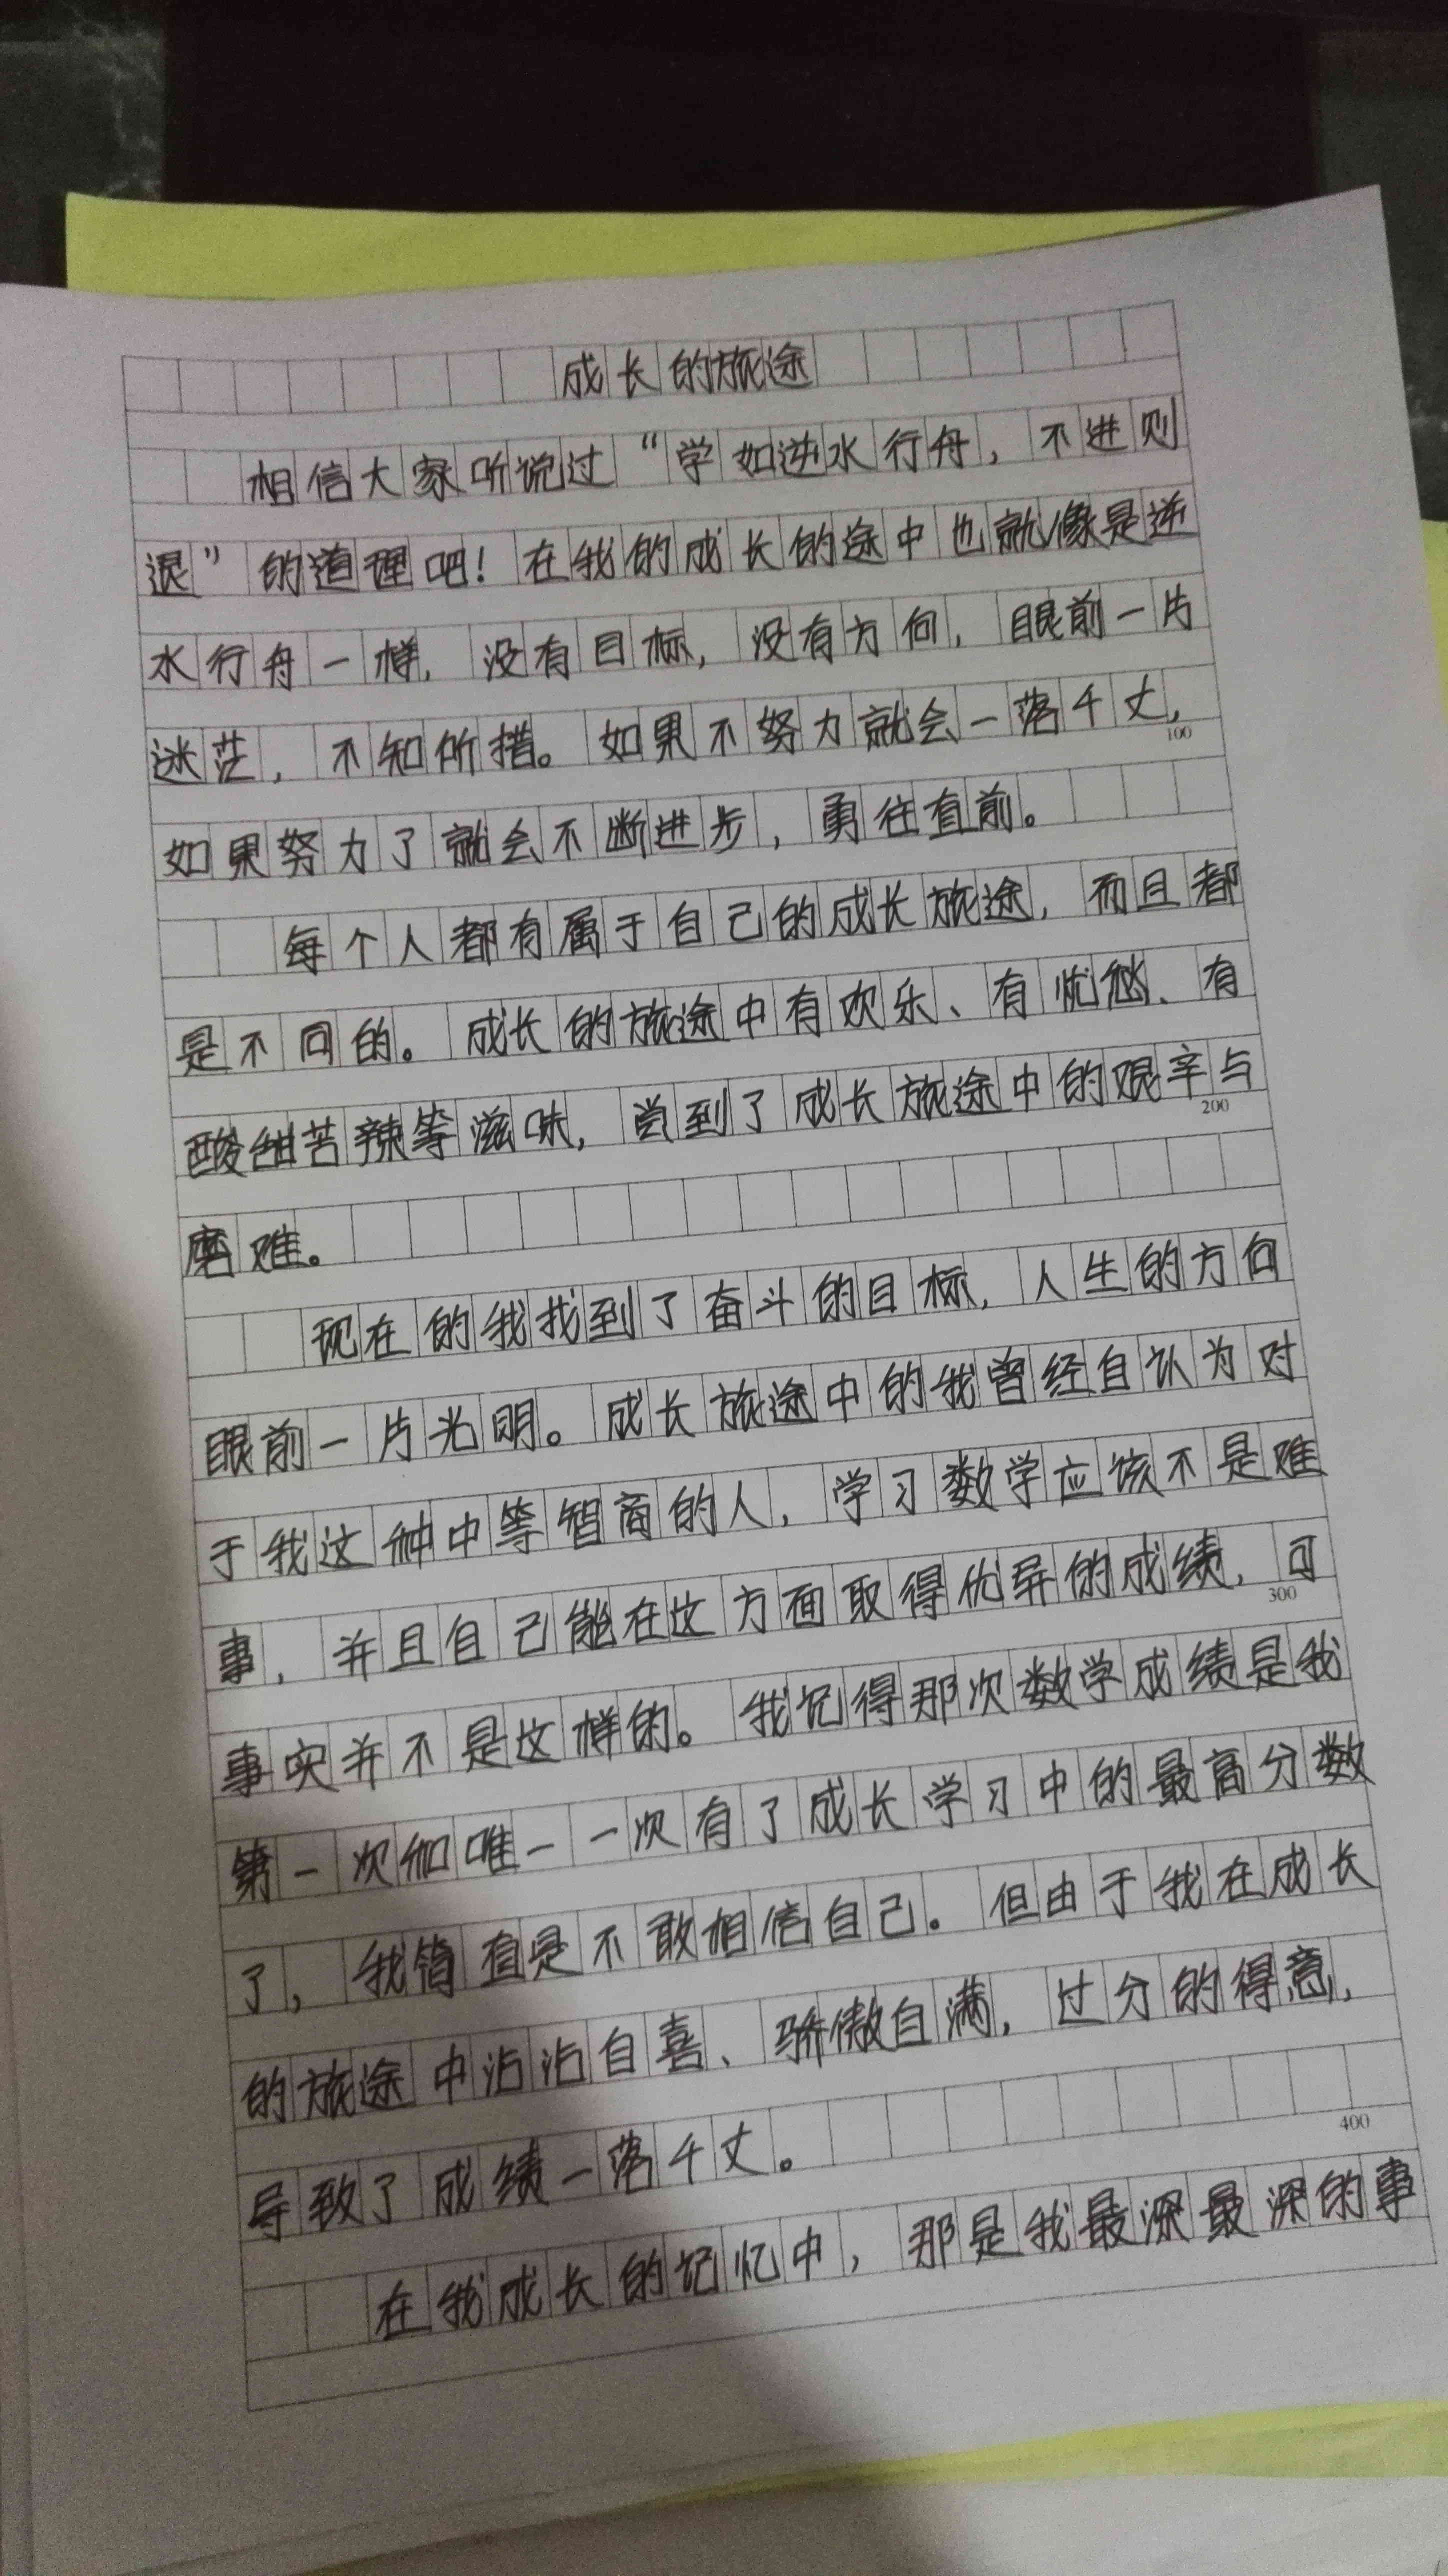 成长的旅途
相信大家听说过“学如逆水行舟，不进则
退”的道理吧！在我的成长的途中也就像是逆
水行舟一样，没有目标，没有方向，眼前一片
迷茫，不知所措。如果不努力就会一落千丈，
100
如果努力了就会不断进步，勇往直前。
每个人都有属于自己的成长旅途，而且都
是不同的。成长的旅途中有欢乐、有忧愁、有
酸甜苦辣等滋味，尝到了成长旅途中的艰辛与
200
磨难。
现在的我找到了奋斗的目标，人生的方向
眼前一片光明。成长旅途中的我曾经自认为对
于我这种中等智商的人，学习数学应该不是难
事，并且自己能在这方面取得优异的成绩，可
300
事实并不是这样的。我记得那次数学成绩是我
第一次和唯一一次有了成长学习中的最高分数
了，我简直是不敢相信自己。但由于我在成长
的旅途中沾沾自喜、骄傲自满，过分的得意，
导致了成绩一落千丈。
400
在我成长的记忆中，那是我最深最深的事